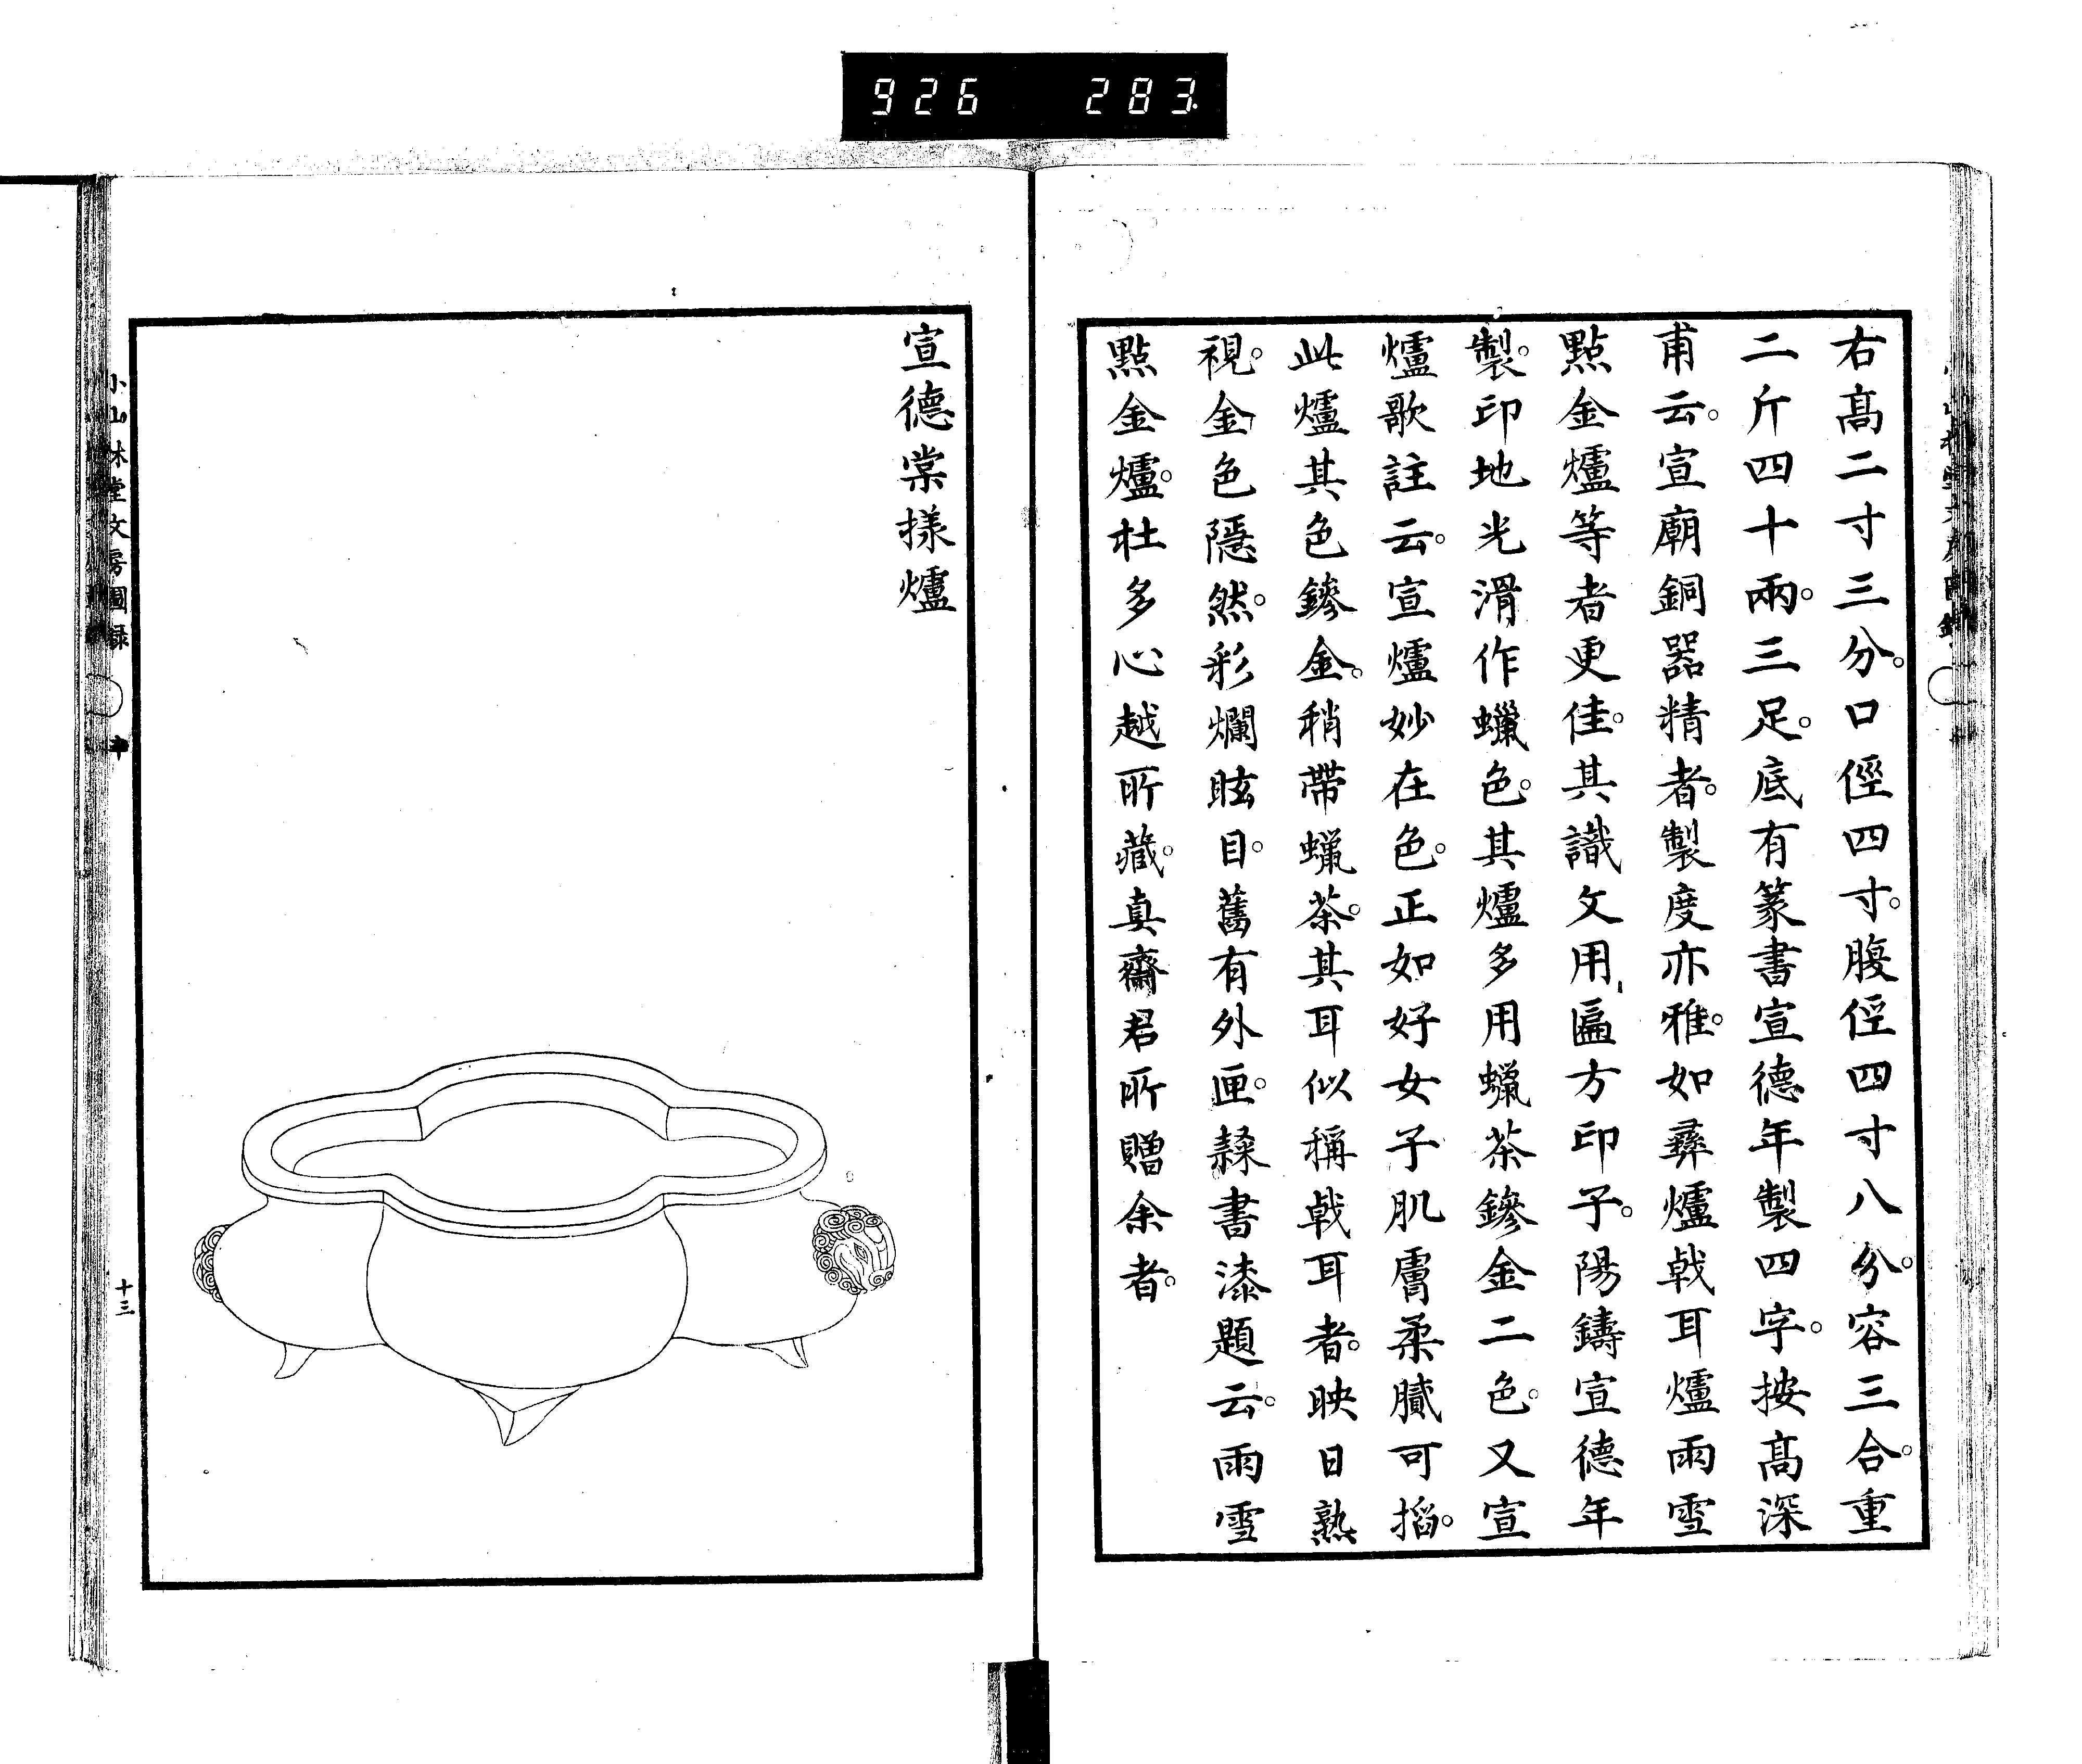 926 283
右髙二寸三分。口徑四寸。腹徑四寸八分。容三合。重
二斤四十兩。三足。底有篆書宣德年製四字。按髙深
甫云。宣廟銅器精者。製度亦雅。如彞爐戟耳爐雨雪
點金爐等者更佳。其識文用匾方印子。陽鑄宣德年
製。印地光滑作蠟色。其爐多用蠟茶鏒金二色。又宣
爐歌註云。宣爐妙在色。正如好女子肌膚柔膩可搯。
此爐其色鏒金。稍帶蠟茶。其耳似稱戟耳者。映日熟
視。金色隱然。彩爛眩目。舊有外匣。隸書漆題云。雨雪
點金爐。杜多心越所藏。真齋君所贈余者。
宣德棠様爐
小山林堂文房圖録
十三